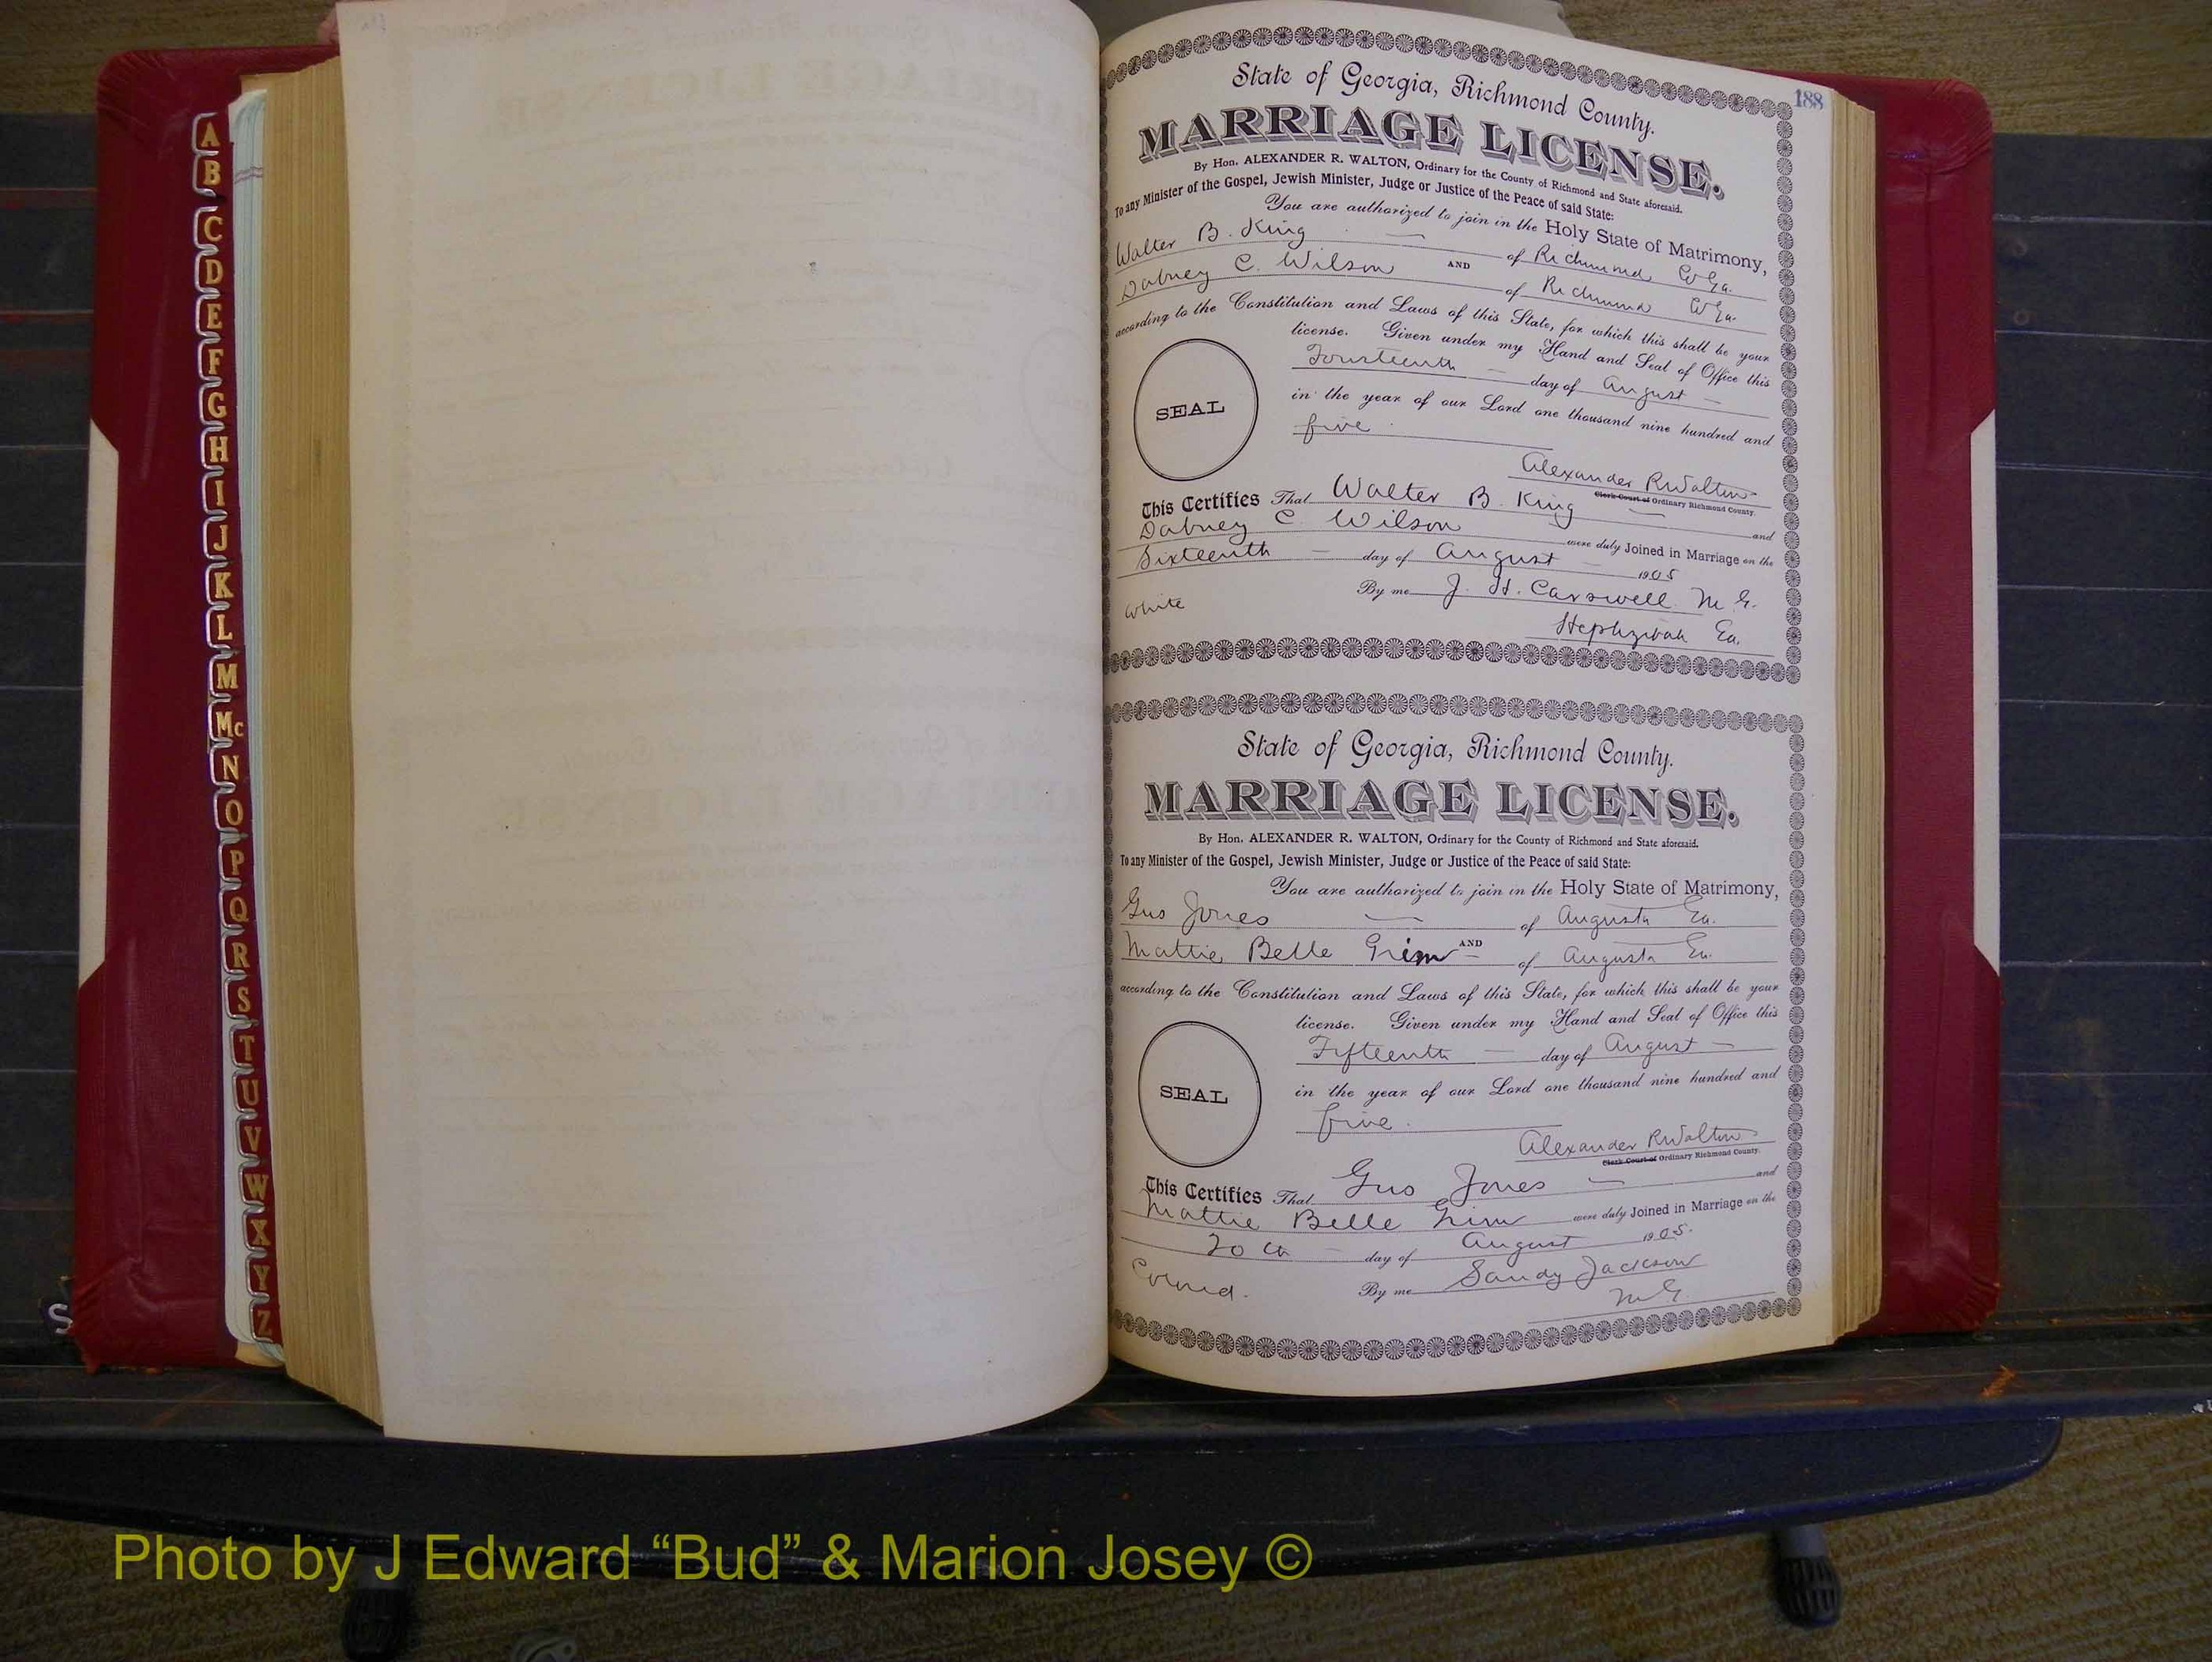 A
B
C
D
E
F
G
H
I
J
K
L
M
Mc
N
O
P
Q
R
S
T
U
V
W
X
Y
Z
188
State of Georgia, Richmond County.
MARRIAGE LICENSE.
By Hon. ALEXANDER R. WALTON, Ordinary for the County of Richmond and State aforesaid.
To any Minister of the Gospel, Jewish Minister, Judge or Justice of the Peace of said State:
You are authorized to join in the Holy State of Matrimony,
Walter B. King of Richmond Co Ga.
AND
Dabney C. Wilson of Richmond Co Ga.
according to the Constitution and Laws of this State, for which this shall be your
license. Given under my Hand and Seal of Office this
Fourteenth day of August
in the year of our Lord one thousand nine hundred and
five
SEAL
Alexander R Walton
Clerk Court of Ordinary Richmond County.
This Certifies That Walter B. King and
Dabney C Wilson were duly Joined in Marriage on the
Sixteenth day of August 1905
By me J. H. Carswell M G.
White
Hephzibah Ga.
State of Georgia, Richmond County.
MARRIAGE LICENSE.
By Hon. ALEXANDER R. WALTON, Ordinary for the County of Richmond and State aforesaid.
To any Minister of the Gospel, Jewish Minister, Judge or Justice of the Peace of said State:
You are authorized to join in the Holy State of Matrimony,
Gus Jones of Augusta Ga.
AND
Mattie Belle of Augusta Ga.
according to the Constitution and Laws of this State, for which this shall be your
license. Given under my Hand and Seal of Office this
Fifteenth day of August
in the year of our Lord one thousand nine hundred and
five.
SEAL
Alexander R Walton
Clerk Court of Ordinary Richmond County.
This Certifies That Gus Jones and
Mattie Belle were duly Joined in Marriage on the
20 th day of August 1905.
By me Sandy Jackson
Colored.
M G
Photo by J Edward “Bud” & Marion Josey ©